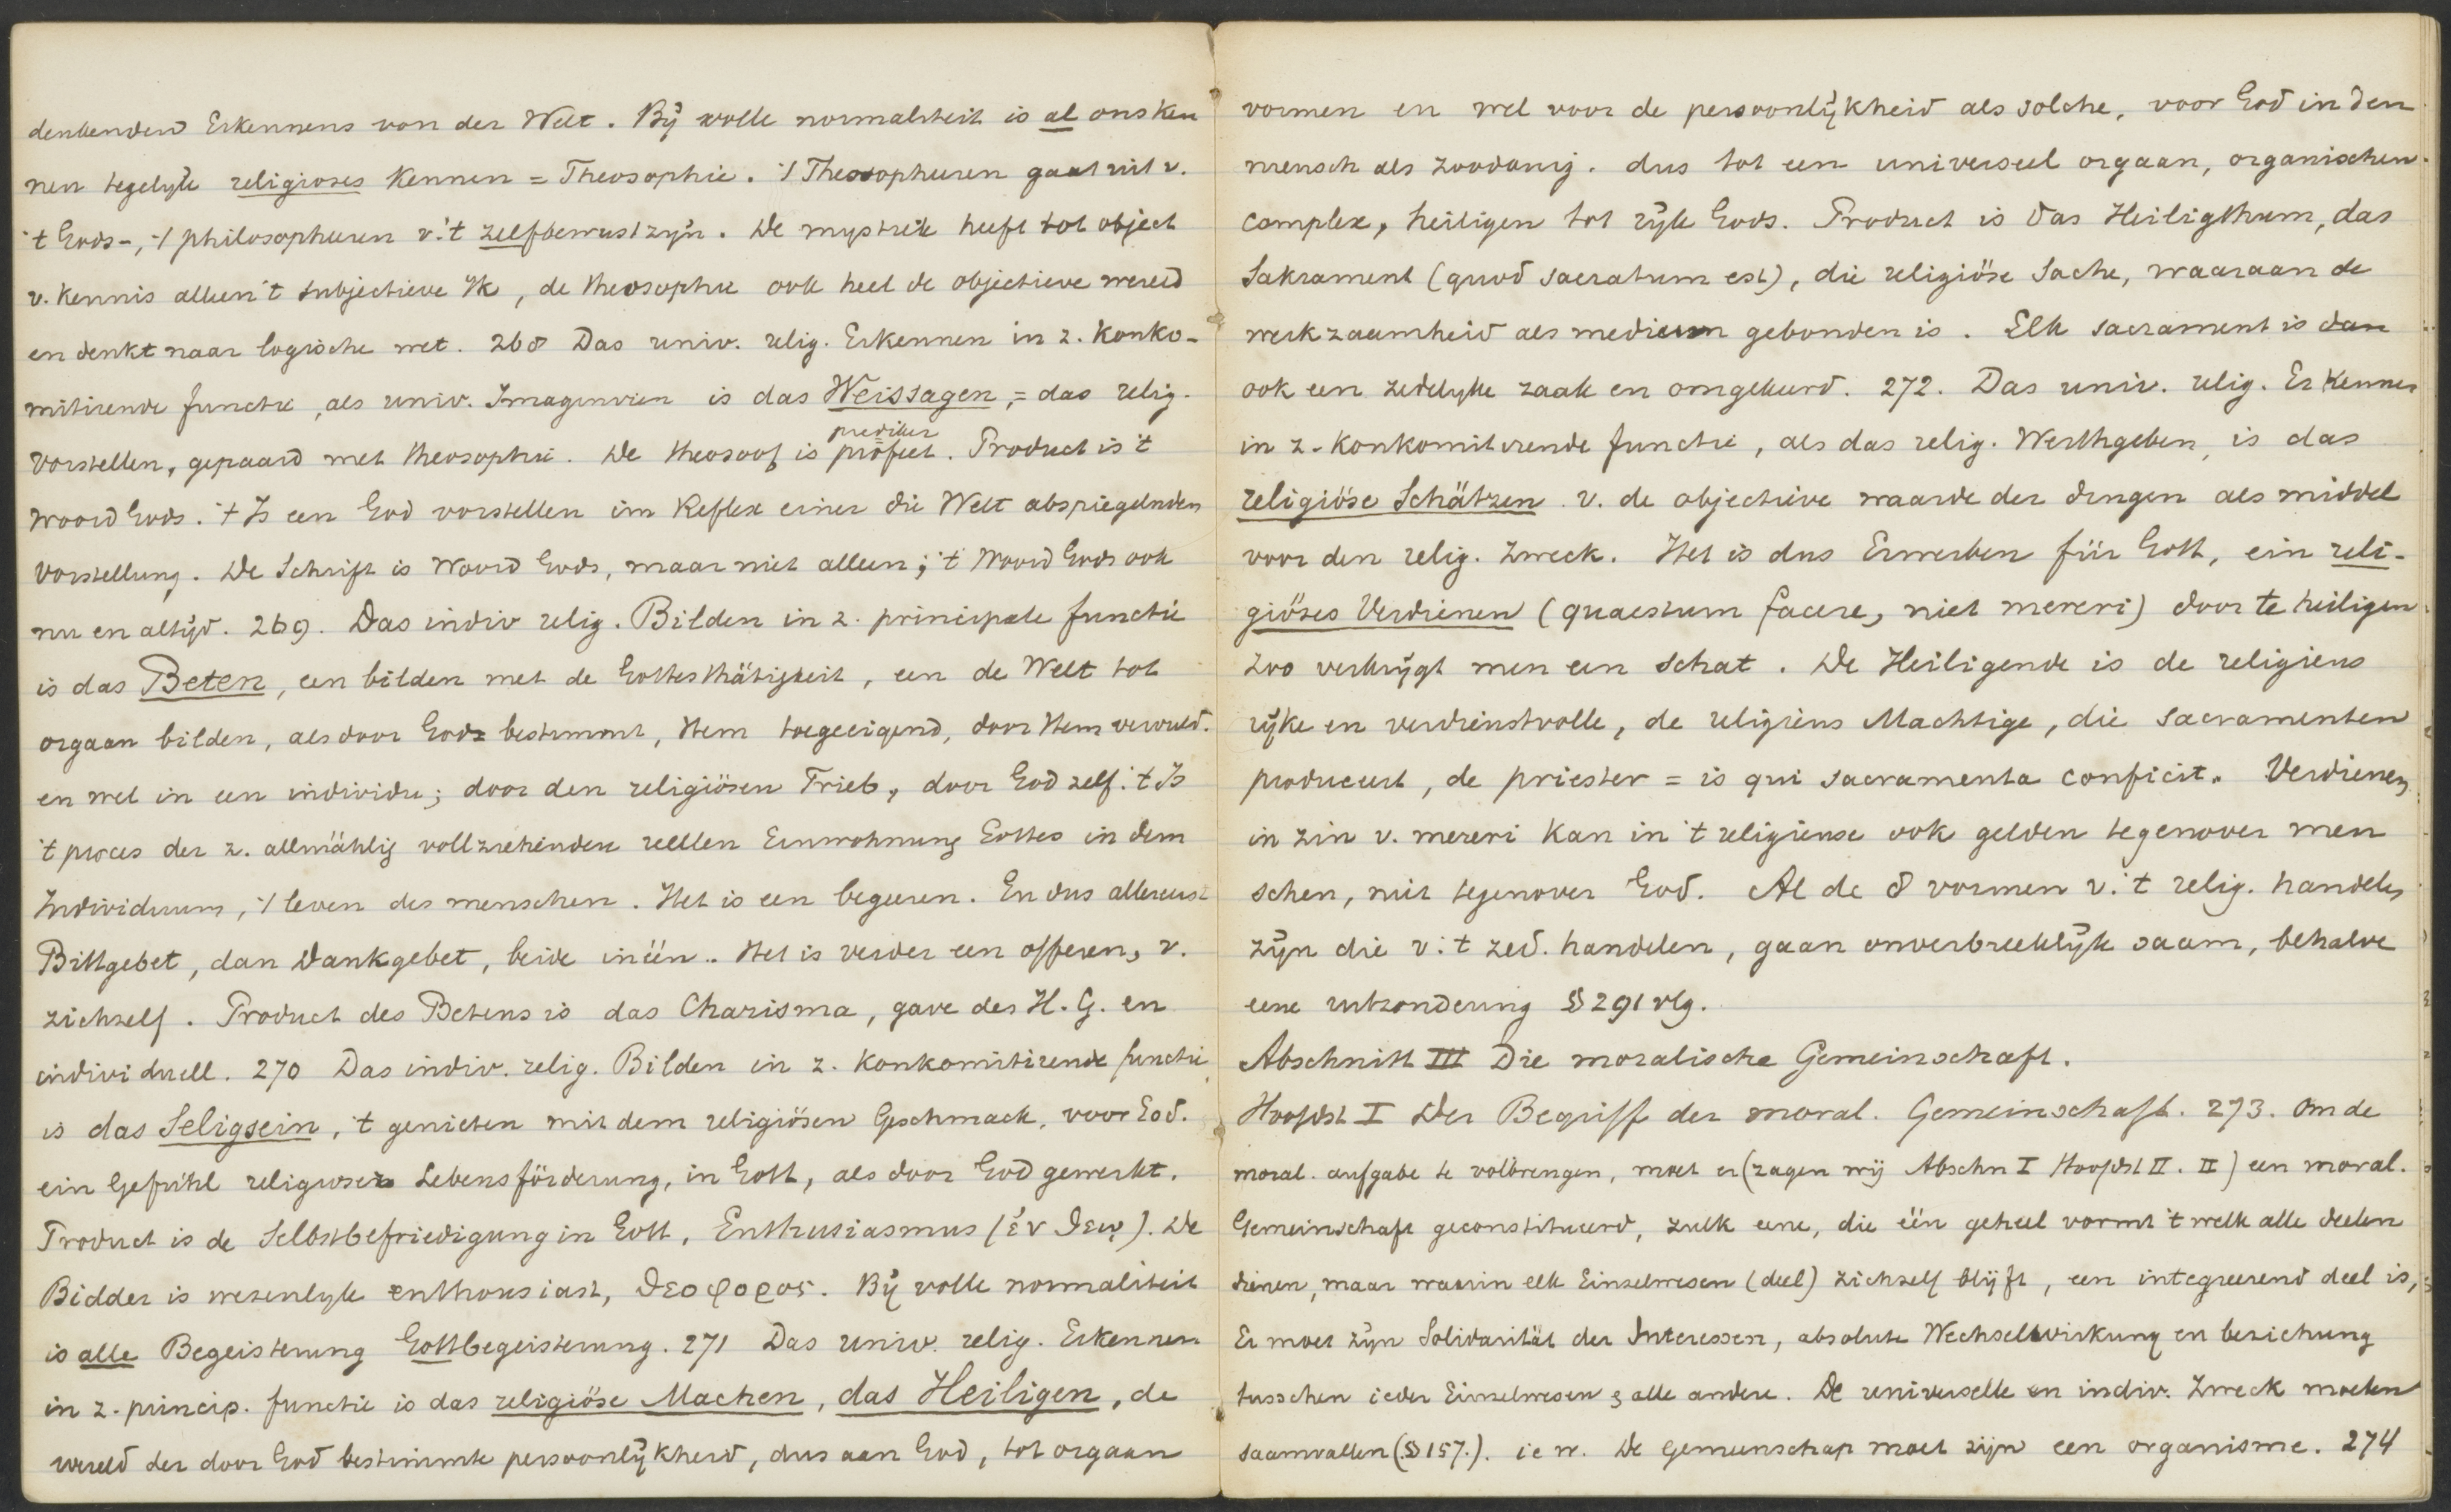 denkenden Erkennens von der Welt. Bij volle normaliteit is al ons ken
nen tegelijk religioses Kennen = Theosophie. 't Theosopheeren gaat uit v.
't Gods-, 't philosopheeren v. 't zelfbewustzijn. De mystiek heeft tot object
v. kennis alleen 't subjectieve Ik, de theosophie ook heel de objectieve wereld
en denkt naar logische wet. 268 Das univ. relig. Erkennen in z. konko-
mitirende functie, als univ. Imaginiren is das Weissagen, = das relig.
Vorstellen, gepaard met theosophie. De theosoof is profeet. Product is 't
prediker
Woord Gods. 't Is een God vorstellen im Reflex einer die Welt abspiegelnden
Vorstellung. De Schrift is Woord Gods, maar niet alleen; 't Woord Gods ook
nu en altijd. 269. Das indiv relig. Bilden in z. principale functie
is das Beten, een bilden met de Gottesthätigkeit, een de Welt tot
orgaan bilden, als door God bestimmt, Hem toegeeigend, door Hem vervuld.
en wel in een individu; door den religiösen Trieb, door God zelf. 't Is
't proces der z. allmählig vollziehenden reellen Einwohnung Gottes in dem
Individuum, 't leven des menschen. Het is een begeeren. En dus allereerst
Bittgebet, dan Dankgebet, beide inéén. Het is verder een offeren, v.
zichzelf. Product des Betens is das Charisma, gave des H. G. en
individuell. 270 Das indiv. relig. Bilden in z. konkomitirende functie
is das Seligsein, 't genieten mit dem religiösen Geschmack, voor God.
ein Gefühl religioser Lebensförderung, in Gott, als door God gewerkt.
Product is de Selbstbefriedigung in Gott, Enthusiasmus (ἐν θεῳ). De
Bidder is wezenlijk enthousiast, θεοφορος. Bij volle normaliteit
is alle Begeisterung Gottbegeisterung. 271 Das univ. relig. Erkennen
in z. princip. functie is das religiöse Machen, das Heiligen, de
wereld der door God bestimmte persoonlijkheid, dus aan God, tot orgaan
vormen en wel voor de persoonlijkheid als solche, voor God in den
mensch als zoodanig. dus tot een universeel orgaan, organischen
complex, heiligen tot rijk Gods. Product is das Heiligthum, das
Sakrament (quod sacratum est), die religiöse Sache, waaraan de
werkzaamheid als medium gebonden is. Elk sacrament is dan
ook een zedelijke zaak en omgekeerd. 272. Das univ. relig. Erkennen
in z. konkomitirende functie, als das relig. Werthgeben, is das
religiöse Schätzen v. de objectieve waarde der dingen als middel
voor den relig. Zweck. Het is dus Erwerben für Gott, ein reli-
giöses Verdienen (quaestum facere, niet mereri) door te heiligen
zoo verkrijgt men een schat. De Heiligende is de religieus
rijke en verdienstvolle, de religieus Machtige, die sacramenten
produceert, de priester = is qui sacramenta conficit. Verdienen
in zin v. mereri kan in 't religieuse ook gelden tegenover men
schen, niet tegenover God. Al de 8 vormen v. 't relig. handelen
zijn die v. 't zed. handelen, gaan onverbreeklijk saam, behalve
eene uitzondering § 291 vlg.
Abschnitt III Die moralische Gemeinschaft.
Hoofdst I Der Begriff der moral. Gemeinschaft. 273. Om de
moral. aufgabe te volbrengen, moet er (zagen wij Abschn I Hoofdst II. II) een moral.
Gemeinschaft geconstitueerd, zulk eene, die één geheel vormt 't welk alle deelen
dienen, maar waarin elk Einzelwesen (deel) zichzelf blijft, een integreerend deel is,
Er moet zijn Solidarität der Interessen, absolute Wechselwirkung en beziehung
tusschen ieder Einzelwesen & alle andere. De universelle en indiv. Zweck moeten
saamvallen (§ 157.). i e w. De Gemeenschap moet zijn een organisme. 274